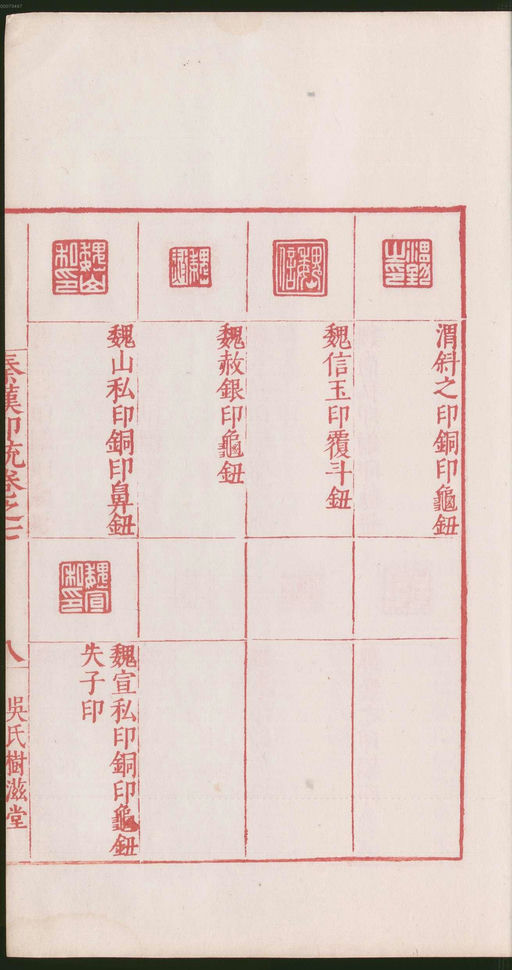 渭斜之印銅印龜鈕
魏信玉印覆斗鈕
魏赦銀印龜鈕
魏山私印銅印鼻鈕
魏宣私印銅印龜鈕
失子印
秦漢印統卷之七
八
吳氏樹滋堂
00079487